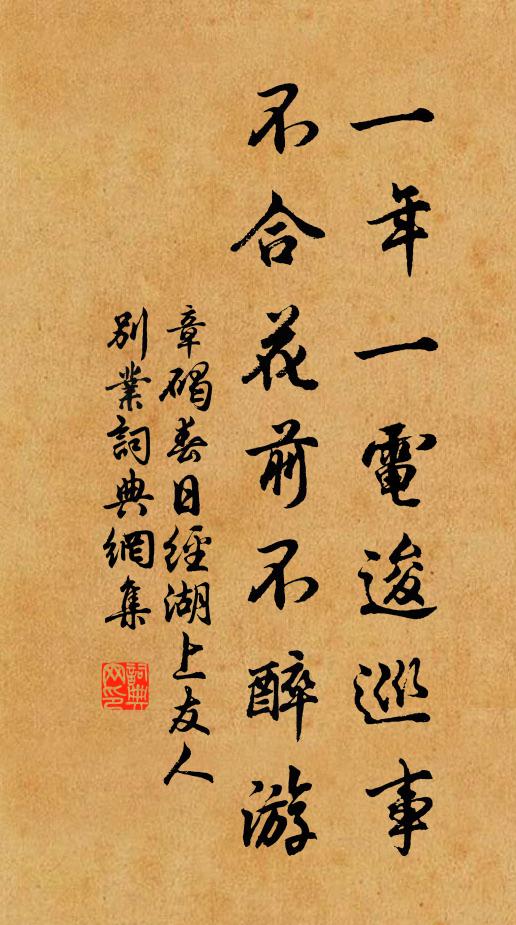 一年一電逡巡事
不合花前不醉游
章碣春日經湖上友人
別業詞典網集
詞典
网印